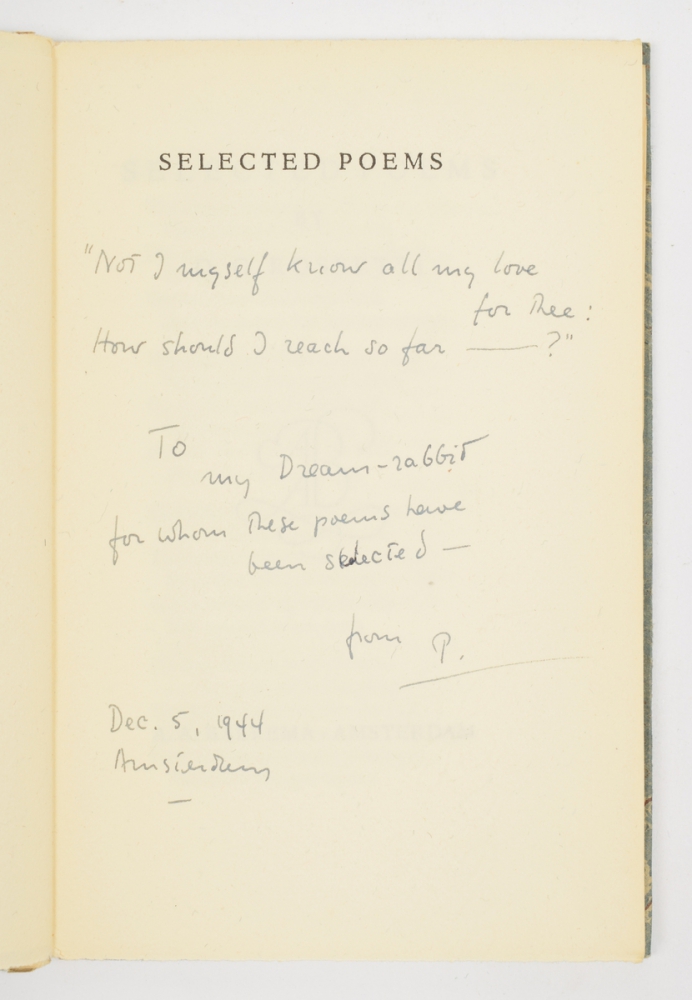 SELECTED POEMS
"Not I myself know all my love
for Thee:
How should I reach so far ——— ?"
To
my Dream-rabbit
for whom these poems have
been selected —
from P.
Dec. 5, 1944
Amsterdam
—